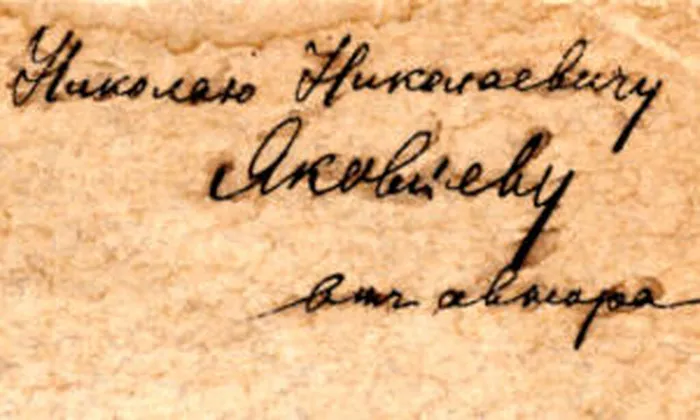 Николаю Николаевичу
Яковлеву
отъ автора